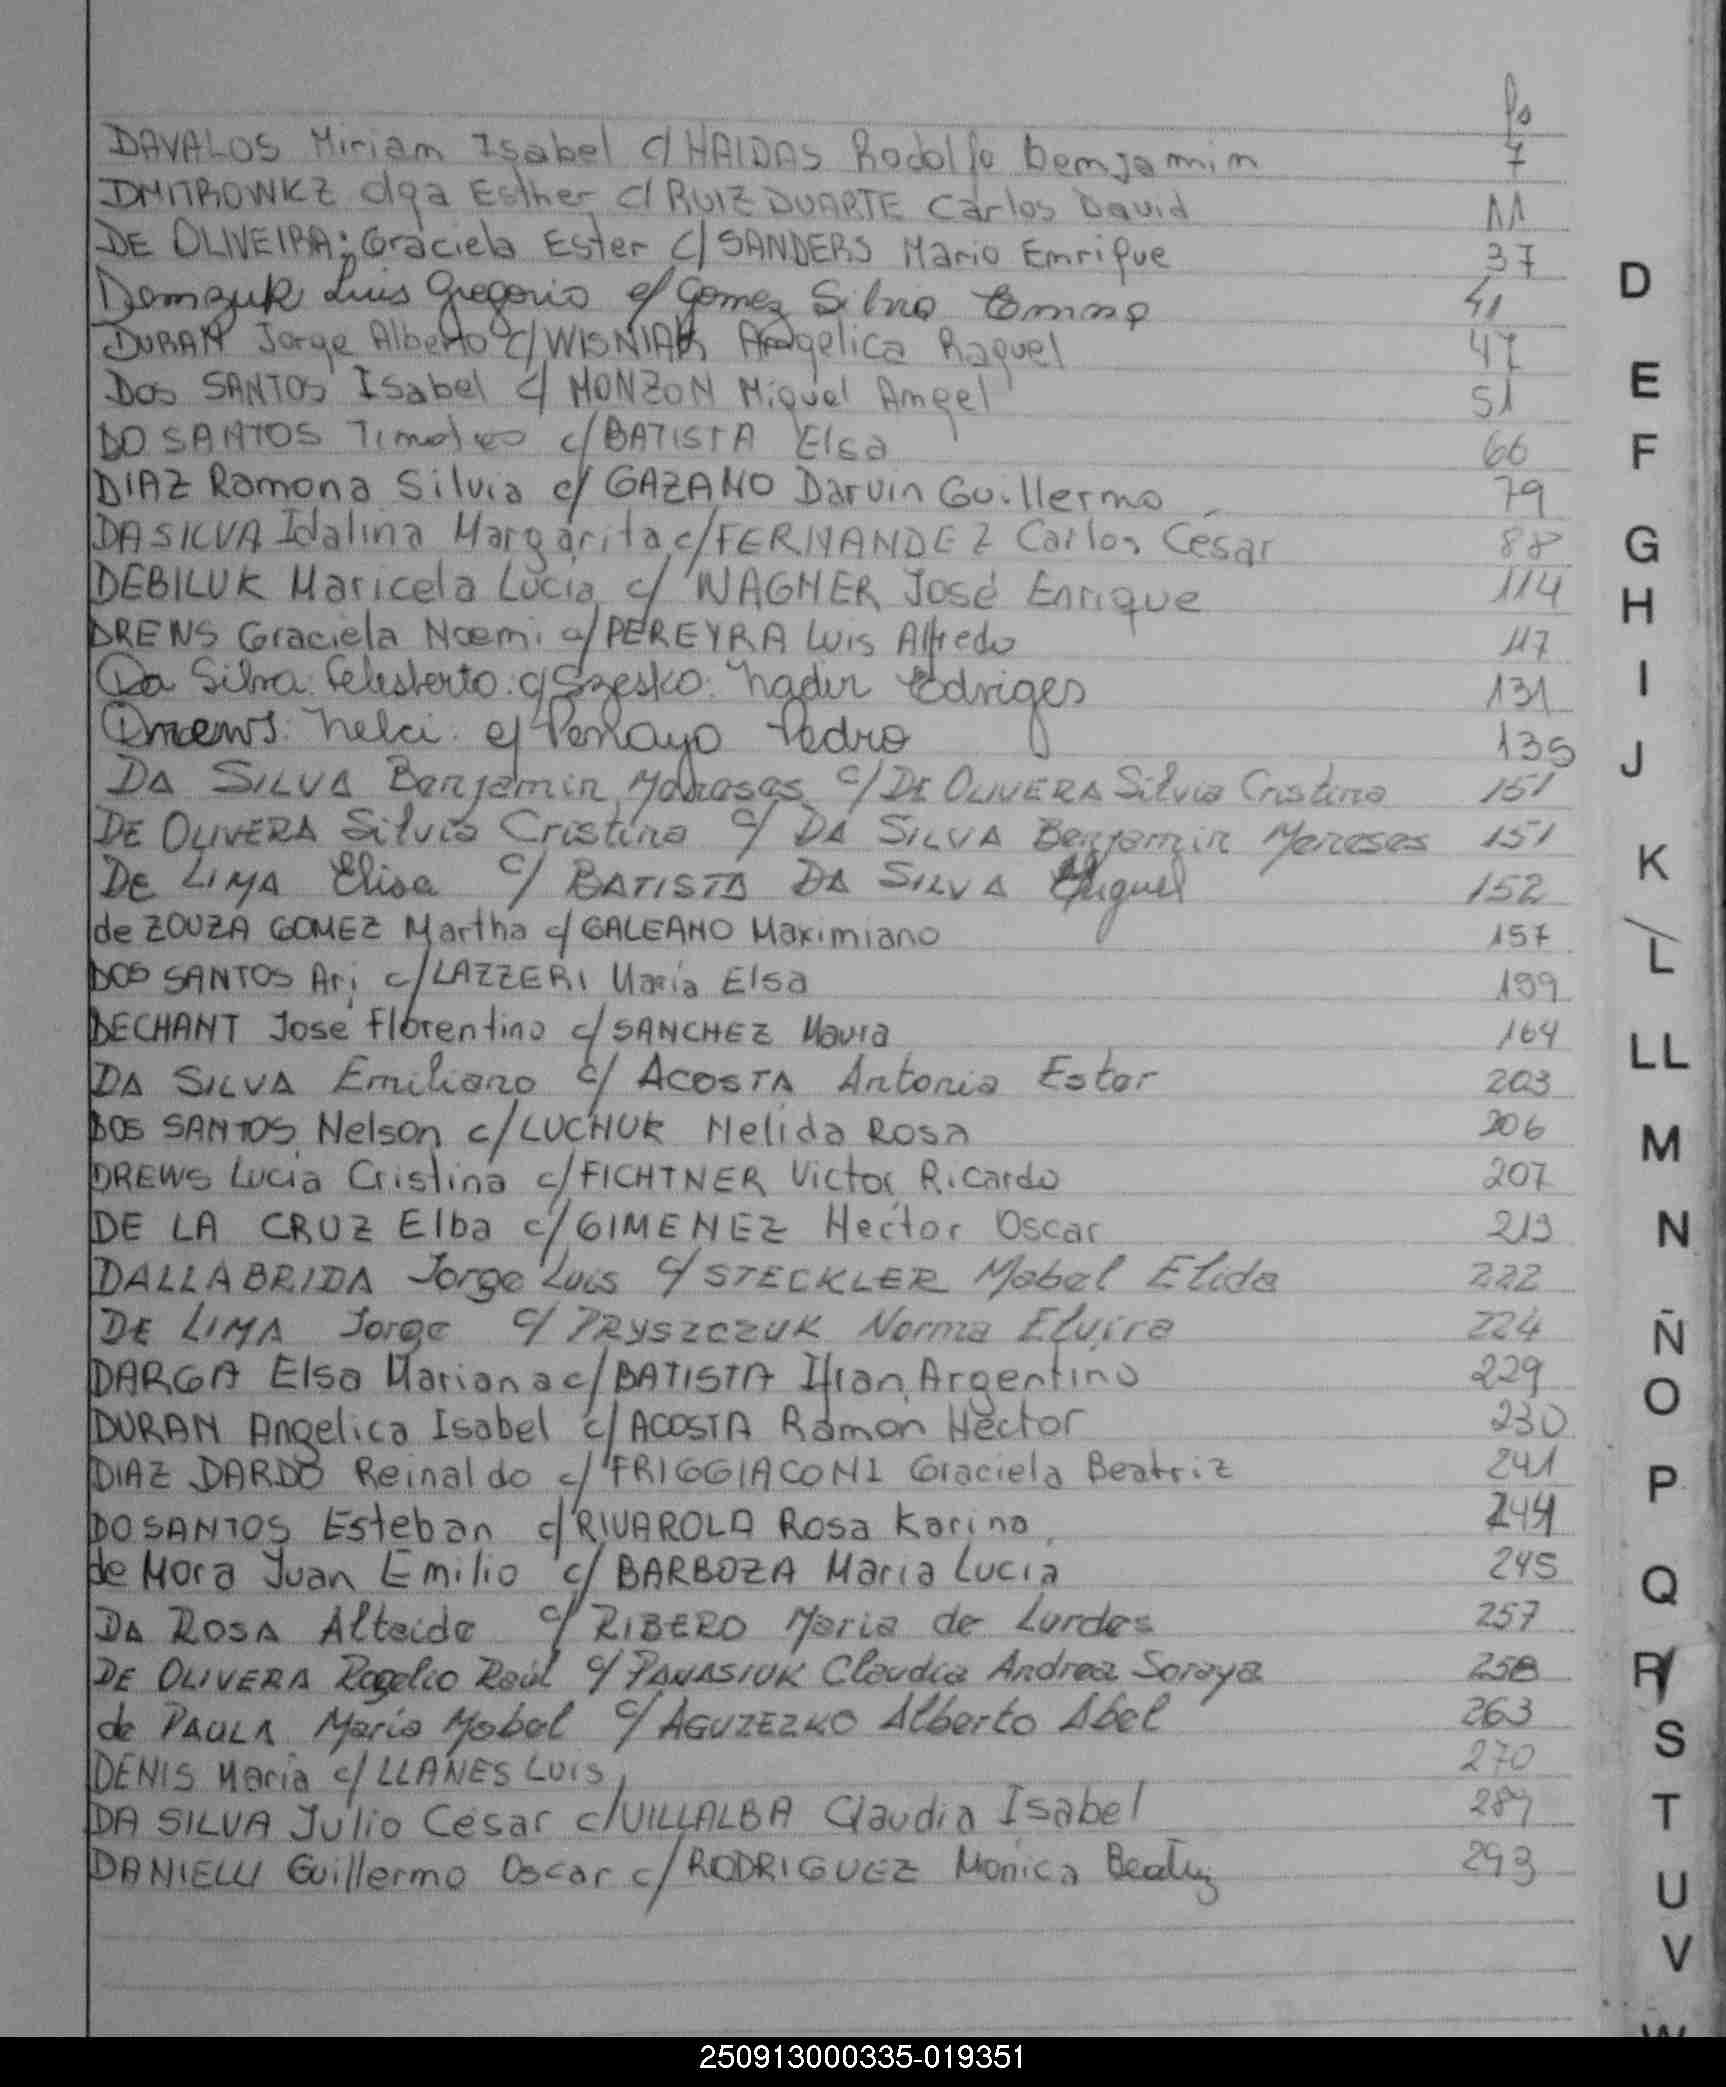 fo
DAVALOS Miriam Isabel c/ HAIDAS Rodolfo Benjamin 7
DMITROWICZ Olga Esther c/ RUIZ DUARTE Carlos David 11
DE OLIVEIRA; Graciela Ester c/ SANDERS Mario Enrique 37
Demzuk Luis Gregorio c/ Gomez Silvia Emma 41
DURAN Jorge Alberto c/ WISNIAK Angelica Raquel 47
DOS SANTOS Isabel c/ MONZON Miguel Angel 51
DO SANTOS Timoteo c/ BATISTA Elsa 66
DIAZ Ramona Silvia c/ GAZANO Darvin Guillermo 79
DA SILVA Idalina Margarita c/ FERNANDEZ Carlos César 88
DEBILUK Maricela Lucia c/ WAGNER José Enrique 114
DRENS Graciela Noemi c/ PEREYRA Luis Alfredo 117
Da Silva Celesberto c/ Szesko Nadir Edviges 131
Drews Nelci c/ Penayo Pedro 135
DA SILVA Benjamin Meneses c/ DE OLIVERA Silvia Cristina 151
DE OLIVERA Silvia Cristina c/ DA SILVA Benjamin Meneses 151
DE LIMA Elisa c/ BATISTA DA SILVA Miguel 152
de ZOUZA GOMEZ Martha c/ GALEANO Maximiano 157
DOS SANTOS Ari c/ LAZZERI María Elsa 159
DECHANT José Florentino c/ SANCHEZ Maura 164
DA SILVA Emiliano c/ ACOSTA Antonia Ester 203
DOS SANTOS Nelson c/ LUCHUK Nelida Rosa 206
DREWS Lucia Cristina c/ FICHTNER Victor Ricardo 207
DE LA CRUZ Elba c/ GIMENEZ Hector Oscar 219
DALLABRIDA Jorge Luis c/ STECKLER Mabel Elida 222
DE LIMA Jorge c/ PRYSZCZUK Norma Elvira 224
DARGA Elsa Mariana c/ BATISTA Ifran Argentino 229
DURAN Angelica Isabel c/ ACOSTA Ramon Hector 230
DIAZ DARDO Reinaldo c/ FRIGGIACONI Graciela Beatriz 241
DO SANTOS Esteban c/ RIVAROLA Rosa Karina 244
de Mora Juan Emilio c/ BARBOZA Maria Lucia 245
DA ROSA Alteide c/ RIBERO Maria de Lurdes 257
DE OLIVERA Rogelio Raúl c/ PANASIUK Claudia Andrea Soraya 258
de PAULA María Mabel c/ AGUZEZKO Alberto Abel 263
DENIS María c/ LLANES Luis 270
DA SILVA Julio César c/ VILLALBA Claudia Isabel 289
DANIELLI Guillermo Oscar c/ RODRIGUEZ Monica Beatriz 293
D
E
F
G
H
I
J
K
L
LL
M
N
Ñ
O
P
Q
R
S
T
U
V
W
250913000335-019351